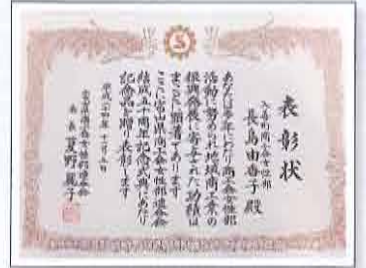 表彰状
入善町商工会女性部
長島由香子 殿
あなたは多年にわたり商工会女性部
活動に努められ地域商工業の
振興発展に寄与された功績は
まことに顕著であります
ここに富山県商工会女性部連合会
結成五十周年記念式典にあたり
記念品を贈り表彰します
平成二十四年十一月五日
富山県商工会女性部連合会
会長 夏野親子